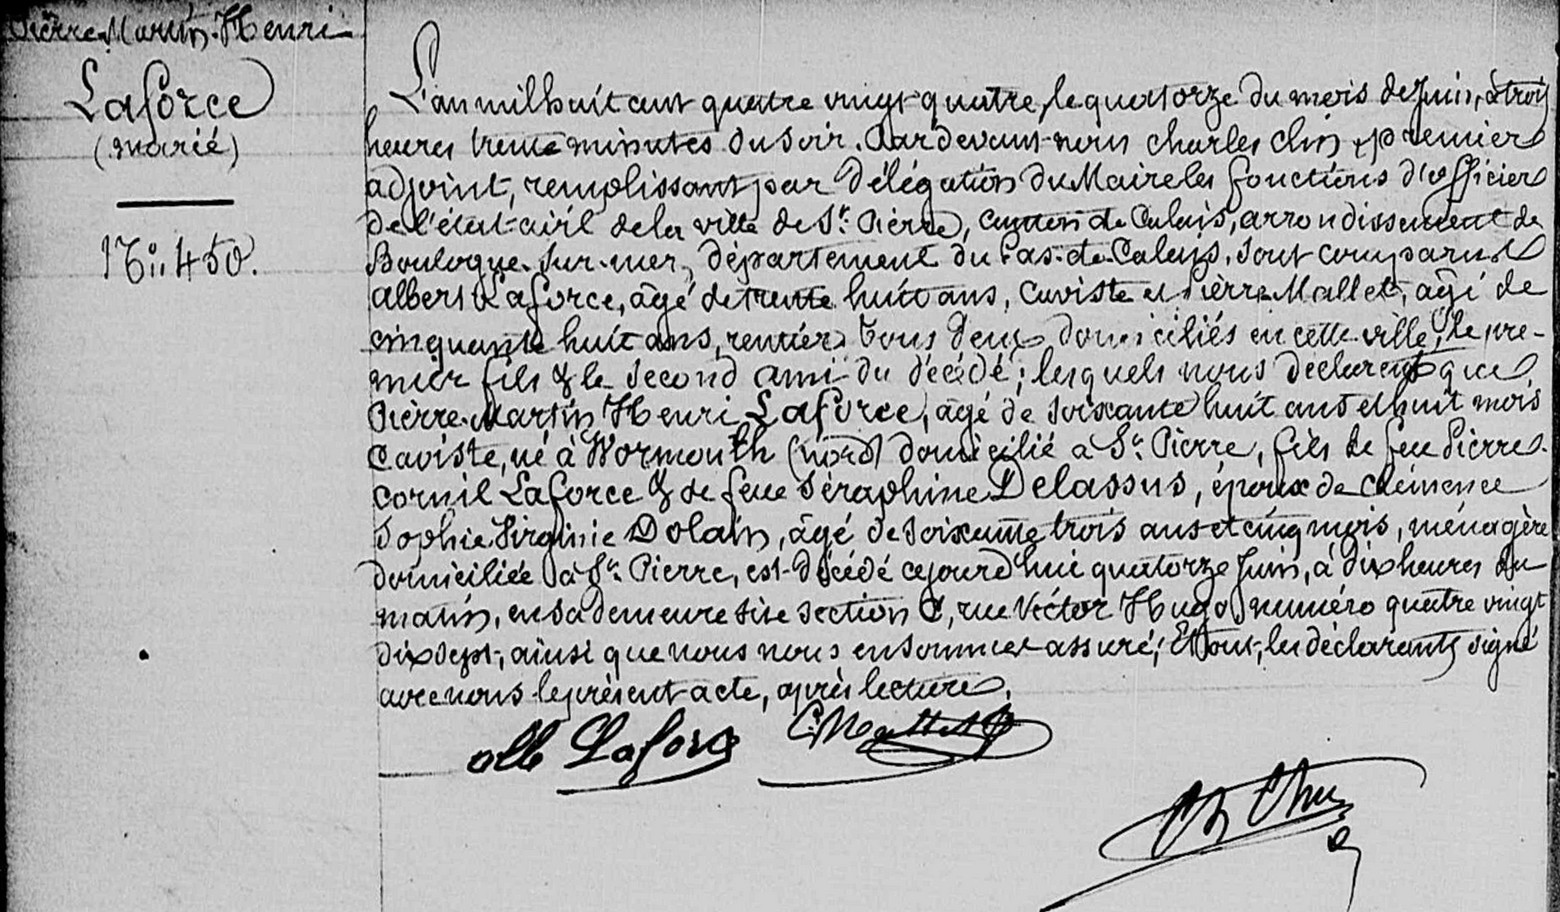 Pierre Martin Henri
Laforce
(marié)
N° 450.
L'an mil huit cent quatre vingt quatre, le quatorze du mois de Juin, à trois
heures trente minutes du soir. Par devant nous Charles premier
adjoint, remplissant par délégation du Maire les fonctions d'officier
de l'état-civil de la ville de St. Pierre, canton de Calais, arrondissement de
Boulogne-sur-mer, département du Pas-de-Calais, sont comparus
Albert Laforce, âgé de trente huit ans, caviste et Pierre Mallet, âgé de
cinquante huit ans, rentier tous deux domiciliés en cette ville, le pre-
mier fils & le second ami du décédé; lesquels nous déclarent que
Pierre Martin Henri Laforce, âgé de soixante huit ans et huit mois
caviste, né à Wormouth (nord) domicilié à St. Pierre, fils de feu Pierre
Cornil Laforce & de feue Séraphine Delassus, époux de Clémence
Sophie Virginie Dolain, âgé de soixante trois ans et cinq mois, ménagère
domiciliée à St. Pierre, est décédé cejourd'hui quatorze Juin, à dix heures du
matin, en sa demeure sise section C, rue Victor Hugo numéro quatre vingt
dix sept, ainsi que nous nous en sommes assuré; Et ont, les déclarants signé
avec nous le présent acte, après lecture.
alb Laforce Mallet
Ch